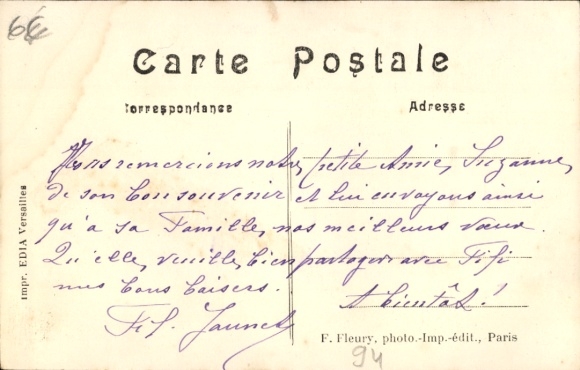 6€
Carte Postale
Correspondance
Adresse
Nous remercions notre petite Amie, Suzanne,
de son bon souvenir et lui envoyons ainsi
qu'à sa Famille, nos meilleurs vœux.
Qu'elle, veuille, bien partager avec Fifi
nos bons baisers.
A bientôt !
Impr. EDIA Versailles
F. Fleury, photo.-Imp.-édit., Paris
94